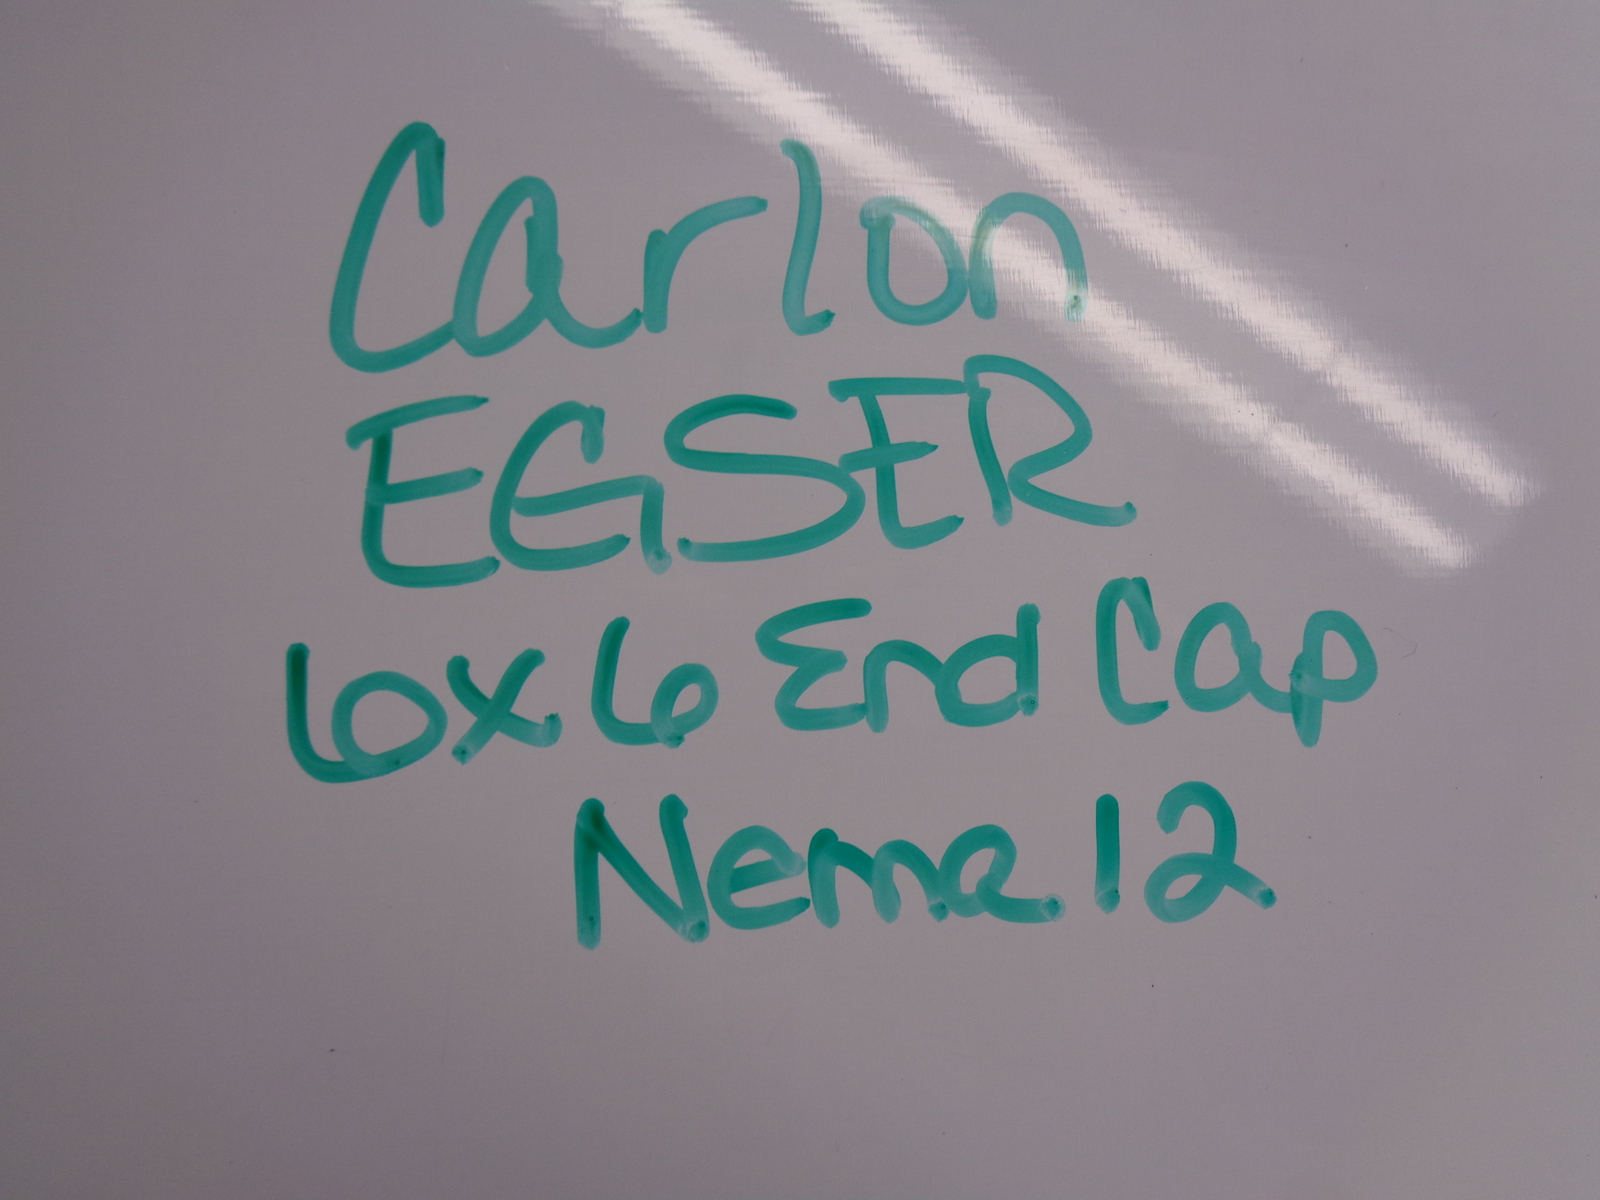 Carlon
EGSER
6x6 End Cap
Nema 12